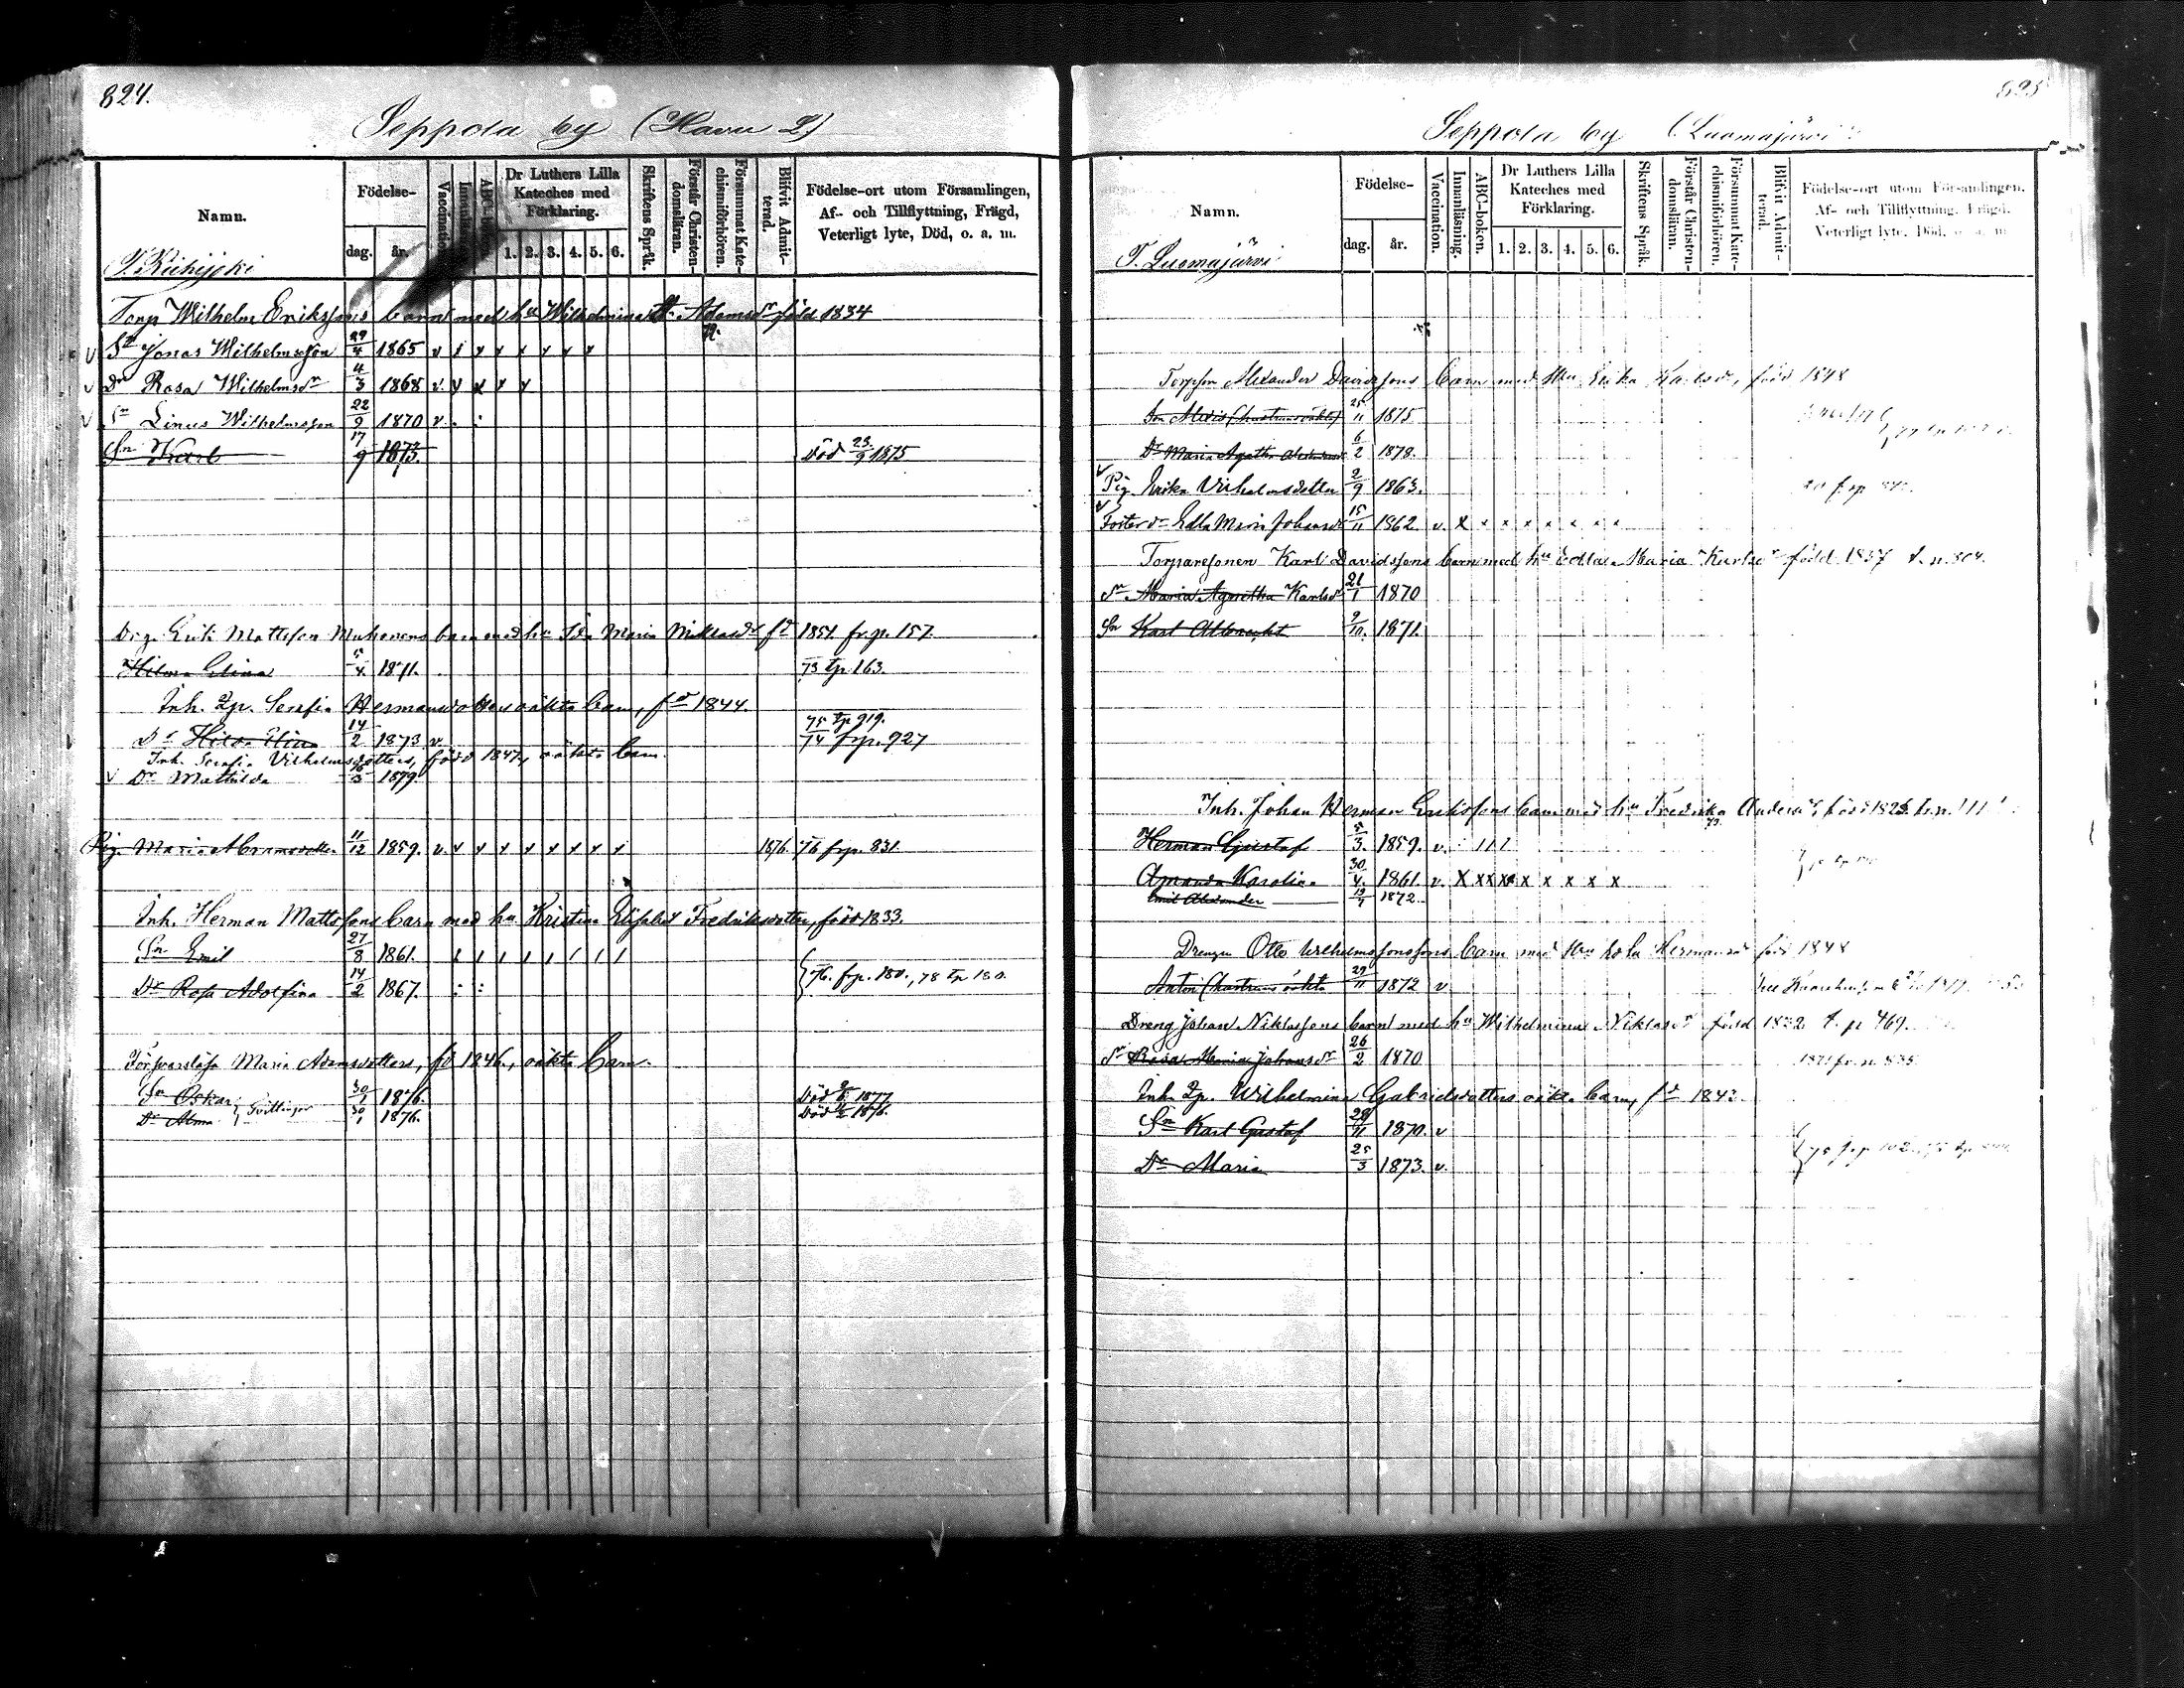 824.
Seppola by (Havu 2)
Namn.
Födelse-
dag. år.
Vaccination.
Innanläsning.
ABC-boken.
Dr Luthers Lilla Kateches med Förklaring.
1. 2. 3. 4. 5. 6.
Skriftens Språk.
Förstår Christendomsläran.
Försummat Katechismiförhören.
Blifvit Admitterad.
Födelse-ort utom Församlingen, Af- och Tillflyttning, Frägd, Veterligt lyte, Död, o. a. m.
Torp Wilhelm Erikssons barn med hu Wilhelmina Adamsdr född 1834
Sn Jonas Wilhelmsson 29/4 1865 v
Dr Rosa Wilhelmsdr 4/3 1868 v
Sn Linus Wilhelmsson 22/9 1870 v
Sn Karl 17/9 1873. Död 23/9 1875
Drg. Erik Mattsson barn med hu Ida Maria Niklasdr fd 1854. fr.p. 157.
Hilma Elina 5/4 1871. 73 tp 163.
Inh. Qp. Serafia Hermansdotters oäkta barn, fd 1844.
75 tp 919.
Dr Hilda Elina 14/2 1873 v 74 frp. 927
Inh. Serafia Vilhelmsdotters, född 1847, oäkta barn.
v Dr Mathilda 16/3 1879.
Pig. Maria Abramsdotter 11/12 1859. v 1876. 76 frp. 831.
Inh. Herman Mattssons barn med hu Kristina Elisabet Fredriksdotter, född 1833.
Sn Emil 27/8 1861.
Dr Rosa Adolfina 14/2 1867. 76. frp. 180., 78 tp 180.
Försvarslösa Maria Adamsdotters, fd 1846., oäkta barn.
Sn Oskar 30/1 1876. Död 1877
Dr Alma Tvillingar 30/1 1876. Död 1876.
825
Seppola by (Luomajärvi
Namn.
Födelse-
dag. år.
Vaccination.
Innanläsning.
ABC-boken.
Dr Luthers Lilla Kateches med Förklaring.
1. 2. 3. 4. 5. 6.
Skriftens Språk.
Förstår Christendomsläran.
Försummat Katechismiförhören.
Blifvit Admitterad.
Födelse-ort utom Församlingen, Af- och Tillflyttning, Frägd, Veterligt lyte, Död, o. a. m.
T. Luomajärvi
Torpson Alexander Davidssons barn med hu Erika Karlsdr, född 1848
Sn Alexis 25/11 1875
Dr Maria Agatha 6/2 1878.
Pig. Erika Vilhelmsdotter 2/9 1863.
Foster dr Edla Maria Johansdr 15/11 1862 v. x x x x x x x x
Torparesonen Karl Davidssons barn med hu Edla Maria Karlsdr född 1837
Maria Agnetha Karlsdr 21/1 1870
Sn Karl Albrecht 9/10. 1871.
Inh. Johan Herman Erikssons barn med hu Fredrika Andersdr
Herman Gustaf 5/3 1859. v.
Amanda Karolina 30/4. 1861. v. x x x x x x x x x
Emil Alexander 1872.
Drengen Otto Wilhelmssons barn med hu Hermansdr född 1848
Anton 29/11 1872 v
Dreng Johan Niklassons barn med hu Wilhelmina Niklasdr född t. p 469.
Rosa Maria Johansdr 26/2 1870
Inh. Qp. Wilhelmina Gabrielsdotters oäkta barn, fd 1842.
Sn Karl Gustaf 29/11 1870. v
Dr Maria 25/3 1873. v.